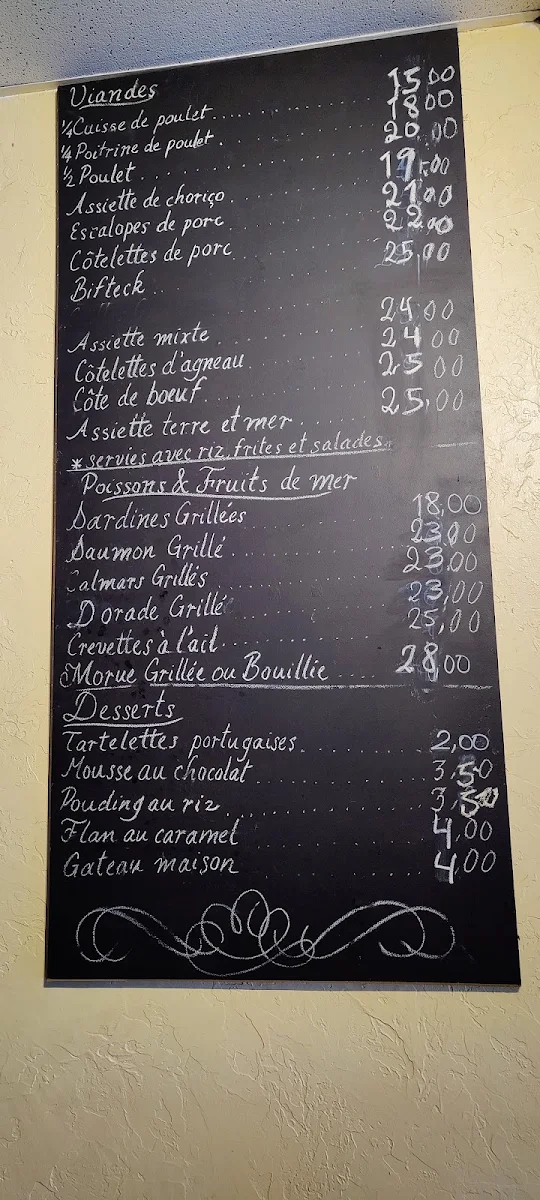 Viandes
¼ Cuisse de poulet 15,00
¼ Poitrine de poulet 18,00
½ Poulet 20,00
Assiette de choriço 19,00
Escalopes de porc 21,00
Côtelettes de porc 22,00
Bifteck 25,00
Assiette mixte 24,00
Côtelettes d'agneau 24,00
Côte de boeuf 25,00
Assiette terre et mer 25,00
* servies avec riz, frites et salades.
Poissons & Fruits de mer
Sardines Grillées 18,00
Saumon Grillé 23,00
Calmars Grillés 23,00
Dorade Grillé 23,00
Crevettes à l'ail 25,00
Morue Grillée ou Bouillie 28,00
Desserts
Tartelettes portugaises 2,00
Mousse au chocolat 3,50
Pouding au riz 3,50
Flan au caramel 4,00
Gateau maison 4,00